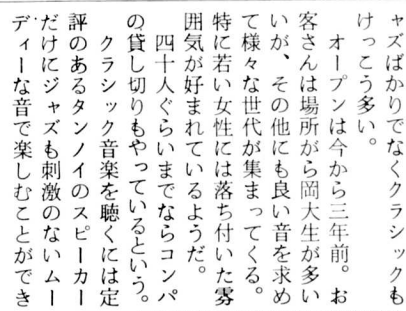 ャズばかりでなくクラシックも
けっこう多い。
オープンは今から三年前。お
客さんは場所がら岡大生が多い
いが、その他にも良い音を求め
て様々な世代が集まってくる。
特に若い女性には落ち付いた雰
囲気が好まれているようだ。
四十人ぐらいまでならコンパ
の貸し切りもやっているという。
クラシック音楽を聴くには定
評のあるタンノイのスピーカー
だけにジャズも刺激のないムー
ディーな音で楽しむことができ